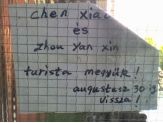 chen xiao
és
zhou yan xin
turista megyünk!
augusztus 30 ig
vissza!